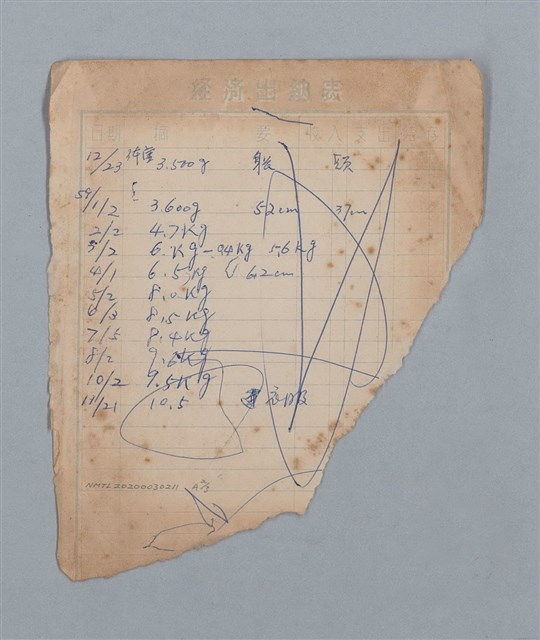 経済出納表
日期 摘 要 収入 支出
12/23 体重 3.500g 身長 頭
59/1/2 3.600g 52cm 37cm
2/2 4.7Kg
3/2 6.Kg-.94Kg 5.6Kg
4/1 6.5Kg 62cm
5/2 8.0Kg
6/3 8.5Kg
7/5 8.4Kg
8/2
10/2 9.5Kg
11/21 10.5 連衣服
NMTL20200030211